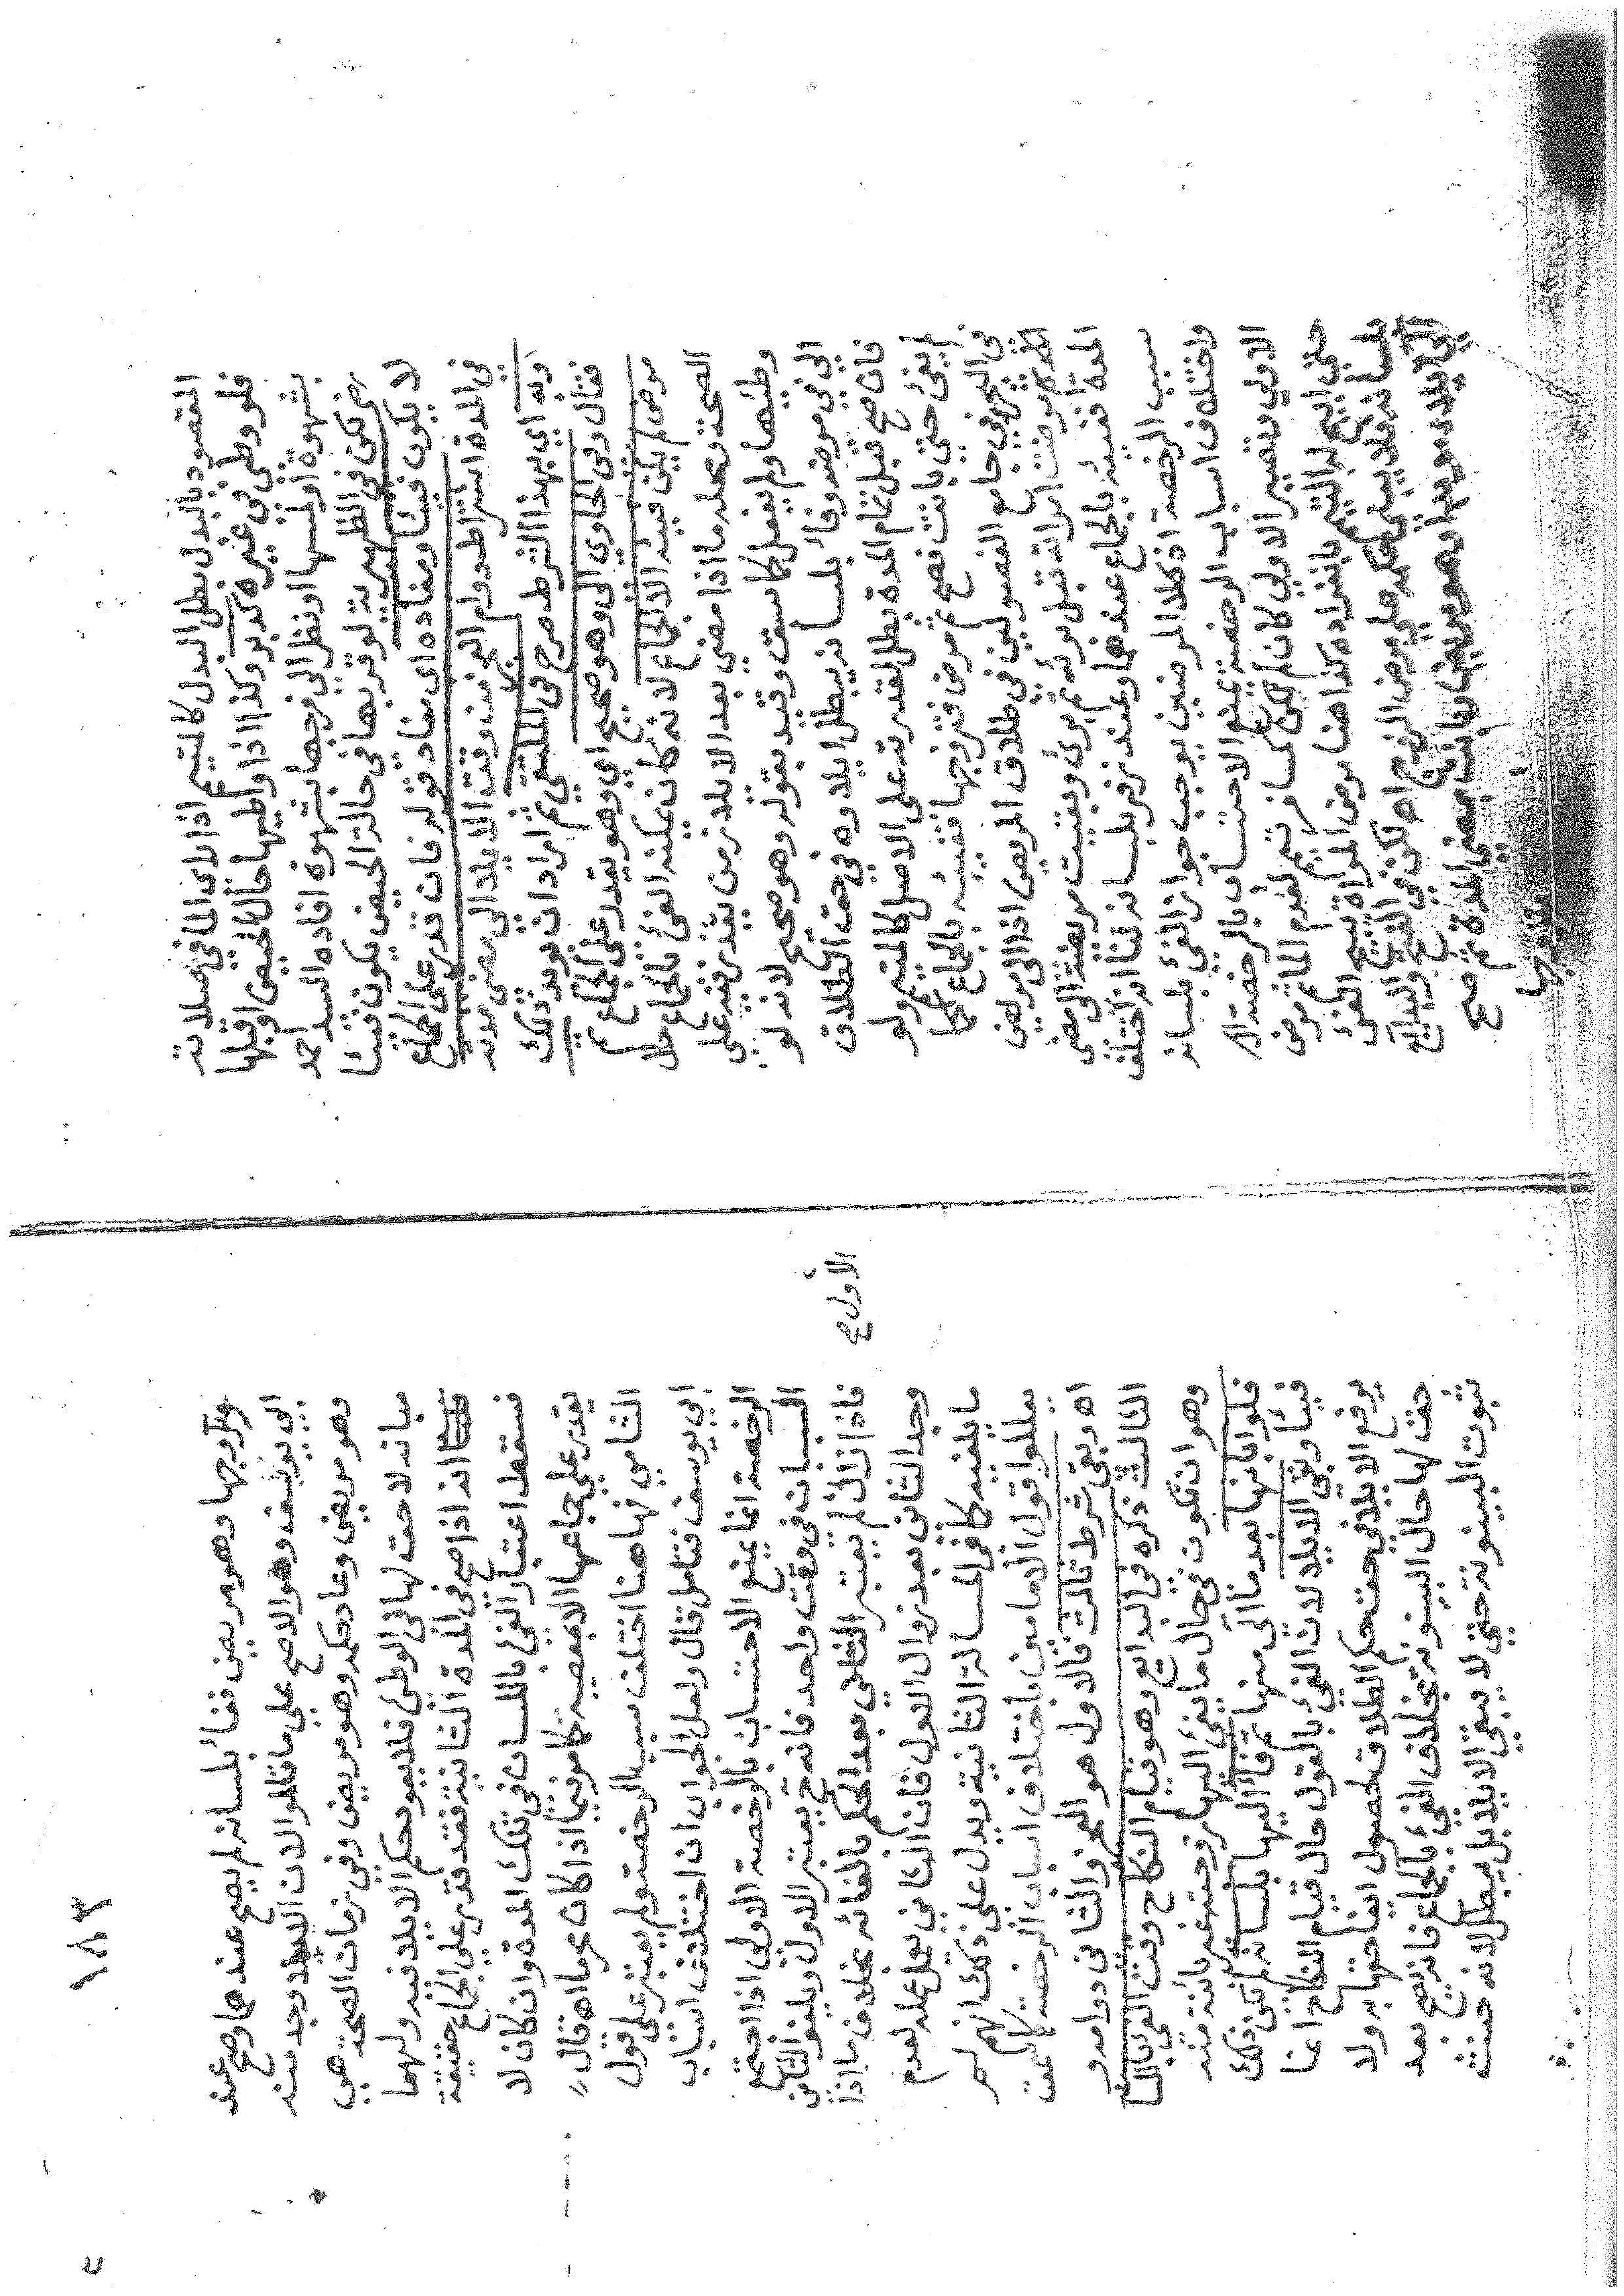 المقصود بالبدل بطل البدل كالمتيم اذا راى الما في صلاته
فلو وطئ في غيره كدبر وكذا اذا وطيها حال الحيض او قبلها
بشهوة او لمسها او نظر الى فرجها بشهوة افاده السيد احمد
لكن في الظهيرية لو قربها في حالة الحيض يكون فيئا
لا يكون فيئا ومفاده اى مفاد قوله فان قدر على الجماع
في المدة اشتراط دوام العجز من وقت الايلاء الى مضي مدته
وبه اي بهذا الشرط صرح في الملتقى ثم اراد ان يؤيد ذلك
فقال وفي الحاوي الى وهو صحيح اي وهو يقدر على الجماع ثم
مرض لم يكن فيئه الا الجماع لانه كان يمكنه الفئ بالجماع حال
الصحة ومحله ما اذا مضى بعد الايلاء زمن يقدر فيه على
وطئها ولم يفعل كما سبق وقيد بقوله وهو صحيح لانه لو
الى في مرضه وفاء بلسانه يبطل ايلاءه في حق الطلاق
فان صح قبل تمام المدة بطل لقدرته على الاصل كالمتيم ولو
لم يفئ حتى بانت فصح ثم مرض فتزوجها ففيئه بالجماع كما
في البحر وفي جامع الفصولين في طلاق المريض اذا الى مريض
ثم مرضت امراته قبل برئه ثم برئ وبقيت مريضة الى مضى
المدة ففيئه بالجماع عندهما وعند زفر بلسانه لنا انه اختلف
سبب الرخصة اذ كلا المرضين يوجب جواز الفئ بلسانه
واختلاف اسباب الرخصة يمنع الاحتساب بالرخصة ال
الاولى وتصير الاولى كان لم تكن كمسافر تيمم لعدم الماء ثم مرض
حتى ابيح له التيمم بانفراده كذا هنا مرض المراة يبيح الفئ
بلسانه ولا يبتنى حكمه على مرض الزوج اه لكن في الفتح والبدائع
الى ايلاء مؤبدا وهو مريض وبانت بمضي المدة ثم صح
وتزوجها
١٨٣
وتزوجها وهو مريض ففاء بلسانه لم يصح عندهما وصح عند
ابي يوسف وهو الاصح على ما قالوا لان الايلاء وجد منه
وهو مريض وعاد حكمه وهو مريض وفي زمان الصحة هي
مبانة لا حق لها في الوطئ فلا يعود حكم الايلاء فيه ولهما
انه اذا صح في المدة الثانية فقد قدر على الجماع حقيقة
فسقط اعتبار الفئ باللسان في تلك المدة وان كان لا
يقدر على جماعها الا بمعصية كما مر فيما اذا كان محرما اه قال
الشامي فها هنا اختلف سبب الرخصة ولم يعتبر على قول
ابي يوسف فتامل قال ولعل الجواب ان اختلاف اسباب
الرخصة انما يمنع الاحتساب بالرخصة الاولى اذا اجتمع
السببان في وقت واحد فانه ح يعتبر الاول ويلغو الثاني
فاذا زال لم يعتبر الثاني بعد الحكم بالغائه بخلاف ما اذا
الاول صح
وجد الثاني بعد زوال الاول فان الثاني يعمل عمله لعدم
ما يلغيه كما في المسالة الثانية ويدل على ذلك انهم لم
يعللوا قول الامامين باختلاف اسباب الرخصة كما سمعت
اه وبقى شرط ثالث فالاول هو العجز والثاني دوامه و
الثالث ذكره في البدائع وهو قيام النكاح وقت الفئ باللسان
وهو ان تكون في حال ما يفئ اليها زوجته غير بائنة منه
فلو ابانها بعد ما آلى منها ثم فاء اليها بلسانه لم يكن ذلك
فيئا وبقى الايلاء لان الفئ بالقول حال قيام النكاح انما
يرفع الايلاء في حق حكم الطلاق لحصول ايفاء حقها به ولا
حق لها حال البينونة بخلاف الفئ بالجماع فانه يصح بعد
ثبوت البينونة حتى لا يبقى الايلاء بل يبطل لانه حنث